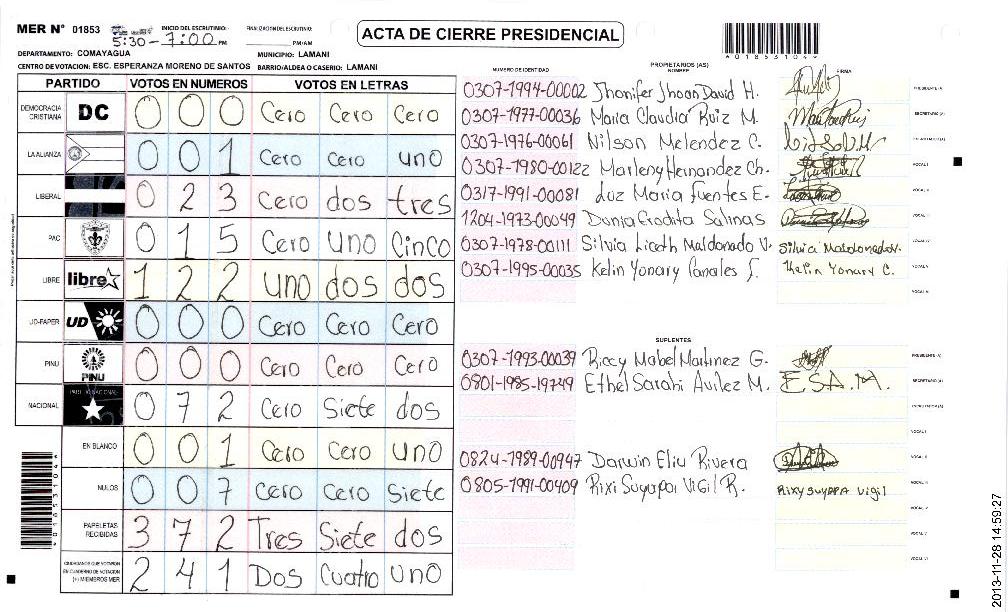 MER N° 01853
INICIO DEL ESCRUTINIO:
5:30 - 7:00 PM
FINALIZACION DEL ESCRUTINIO:
PM/AM
ACTA DE CIERRE PRESIDENCIAL
*01853104*
DEPARTAMENTO: COMAYAGUA
MUNICIPIO: LAMANI
CENTRO DE VOTACION: ESC. ESPERANZA MORENO DE SANTOS
BARRIO/ALDEA O CASERIO: LAMANI
PARTIDO VOTOS EN NUMEROS VOTOS EN LETRAS
DEMOCRACIA CRISTIANA DC 0 0 0 Cero Cero Cero
LA ALIANZA 0 0 1 Cero Cero uno
LIBERAL 0 2 3 Cero dos tres
PAC 0 1 5 Cero uno Cinco
LIBRE libre 1 2 2 uno dos dos
UD-FAPER UD 0 0 0 Cero Cero Cero
PINU PINU 0 0 0 Cero Cero Cero
NACIONAL 0 7 2 Cero Siete dos
EN BLANCO 0 0 1 Cero Cero uno
NULOS 0 0 7 Cero Cero Siete
PAPELETAS RECIBIDAS 3 7 2 Tres Siete dos
CIUDADANOS QUE VOTARON EN CUADERNO DE VOTACION (+) MIEMBROS MER 2 4 1 Dos Cuatro uno
PROPIETARIOS (AS)
NUMERO DE IDENTIDAD NOMBRE FIRMA
0307-1994-00002 Jhonifer Jhoan David H. PRESIDENTE (A)
0307-1977-00036 Maria Claudia Ruiz M. SECRETARIO (A)
0307-1976-00061 Nilson Melendez C. ESCRUTADOR (A)
0307-1980-00122 Marleny Hernandez Ch. VOCAL I
0317-1991-00081 Luz Maria Fuentes E. VOCAL II
1204-1973-00049 Dania Salinas VOCAL III
0307-1978-00111 Silvia Liceth Maldonado V. Silvia Maldonado V. VOCAL IV
0307-1995-00035 Kelin Yonary Canales F. Kelin Yonary C. VOCAL V
VOCAL VI
SUPLENTES
0307-1993-00039 Riccy Mabel Martinez G. PRESIDENTE (A)
0801-1985-19749 Ethel Sarahi Avilez M. E.S.A.M. SECRETARIO (A)
ESCRUTADOR (A)
VOCAL I
0824-1989-00947 Darwin Eliu Rivera VOCAL II
0805-1991-00409 Rixi Suyapa Vigil R. Rixy suyapa vigil VOCAL III
VOCAL IV
VOCAL V
VOCAL VI
*01853104*
2013-11-28 14:59:27